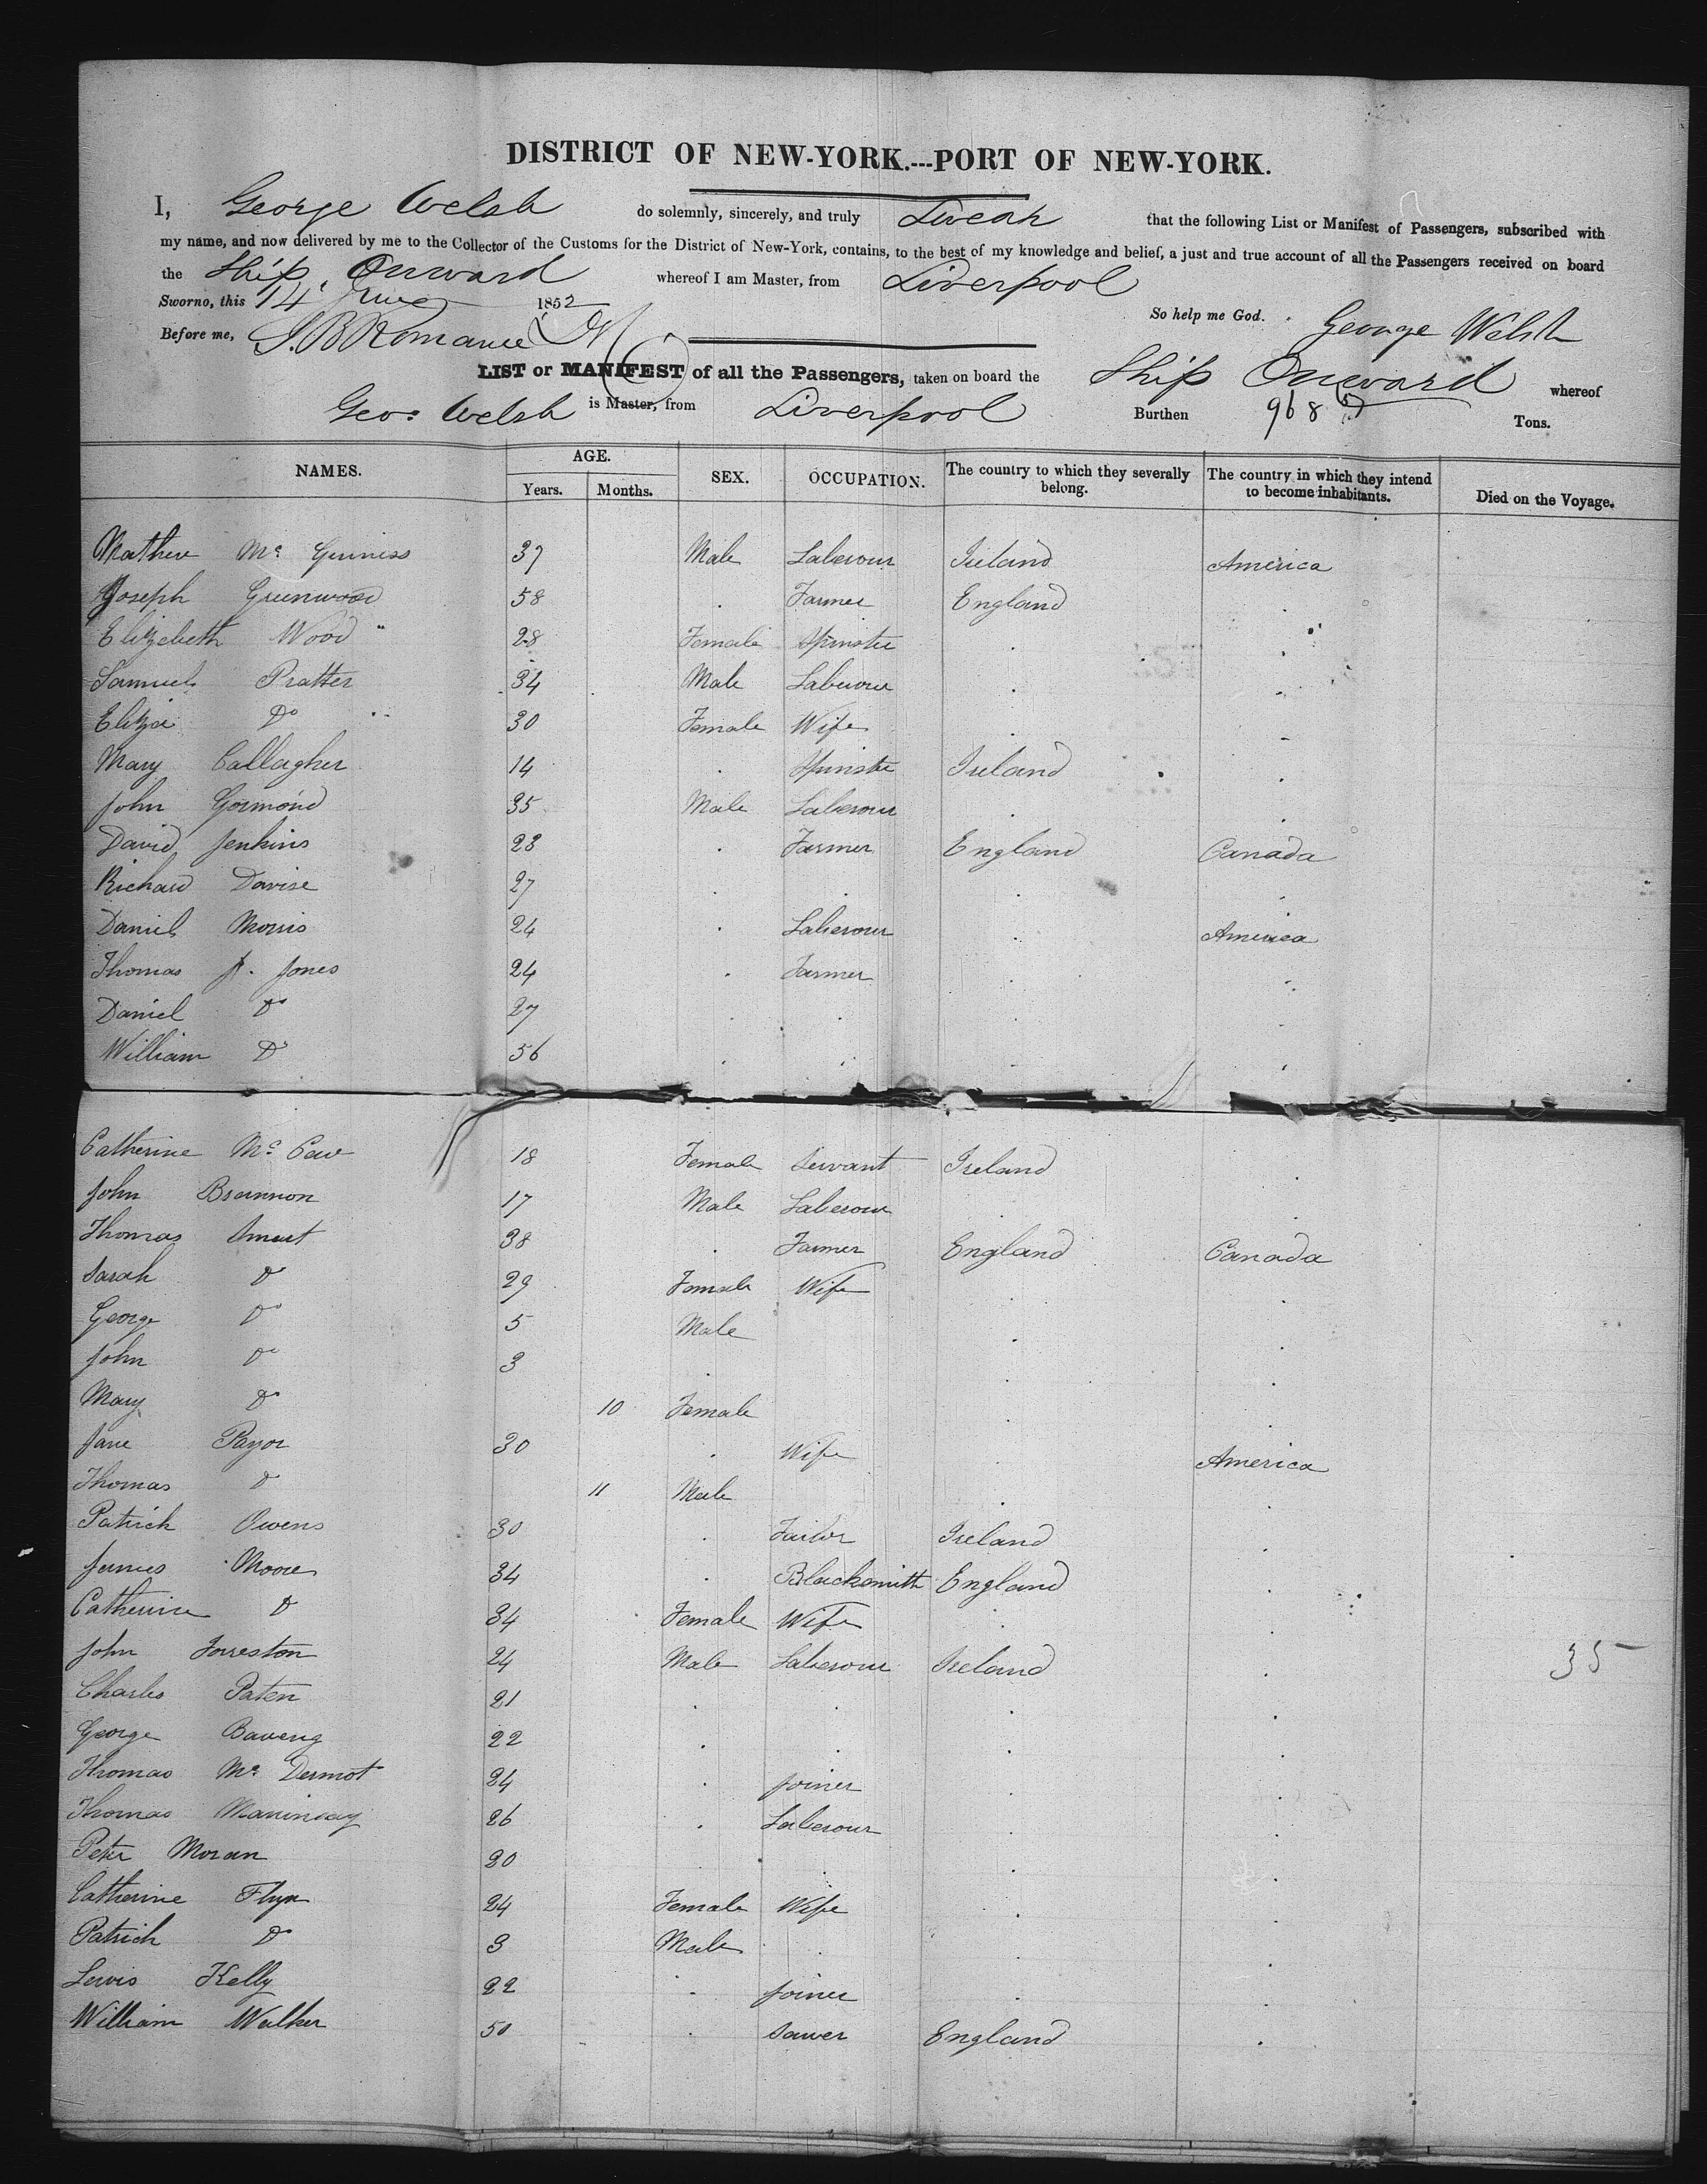 DISTRICT OF NEW-YORK.---PORT OF NEW-YORK.
I, George Welsh do solemnly, sincerely, and truly Swear that the following List or Manifest of Passengers, subscribed with
my name, and now delivered by me to the Collector of the Customs for the District of New-York, contains, to the best of my knowledge and belief, a just and true account of all the Passengers received on board
the Ship Onward whereof I am Master, from Liverpool
Sworno, this 14 June 1852
So help me God. George Welsh
Before me,
LIST or MANIFEST of all the Passengers, taken on board the Ship Onward whereof
Geo. Welsh is Master, from Liverpool Burthen 968 Tons.
NAMES. AGE. Years. Months. SEX. OCCUPATION. The country to which they severally belong. The country in which they intend to become inhabitants. Died on the Voyage.
Mathew Mc Guiness 37 Male Laberour Ireland America
Joseph Greenwood 58 . Farmer England .
Elizebeth Wood " 28 Female Spinster . .
Samuel Pratter 34 Male Laberour . .
Eliza Do 30 Female Wife . .
Mary Callagher 14 . Spinster Ireland .
John Gormond 35 Male Laberour . .
David Jenkins 23 . Farmer England Canada
Richard Davise 27 . . . .
Daniel Morris 24 . Laberour . America
Thomas J. Jones 24 . Farmer . .
Daniel Do 27 . . . .
William Do 56 . . . .
Catherine Mc Caw 18 Female Servant Ireland .
John Brannon 17 Male Laberour . .
Thomas Smart 38 . Farmer England Canada
Sarah Do 29 Female Wife . .
George Do 5 Male . .
John Do 3 . . .
Mary Do 10 Female . .
Jane Pryor 30 . Wife . America
Thomas Do 11 Male . .
Patrick Owens 30 . Tailor Ireland .
James Moore 34 . Blacksmith England .
Catherine Do 34 Female Wife . .
John Forreston 24 Male Laberour Ireland . 35
Charles Paten 21 . . . .
George 22 . . . .
Thomas Mc Dermot 24 . Joiner . .
Thomas 26 . Laberour . .
Peter Moran 20 . . . .
Catherine Flyn 24 Female Wife . .
Patrick Do 3 Male . . .
Lewis Kelly 22 . Joiner . .
William Walker 50 . Sawer England .